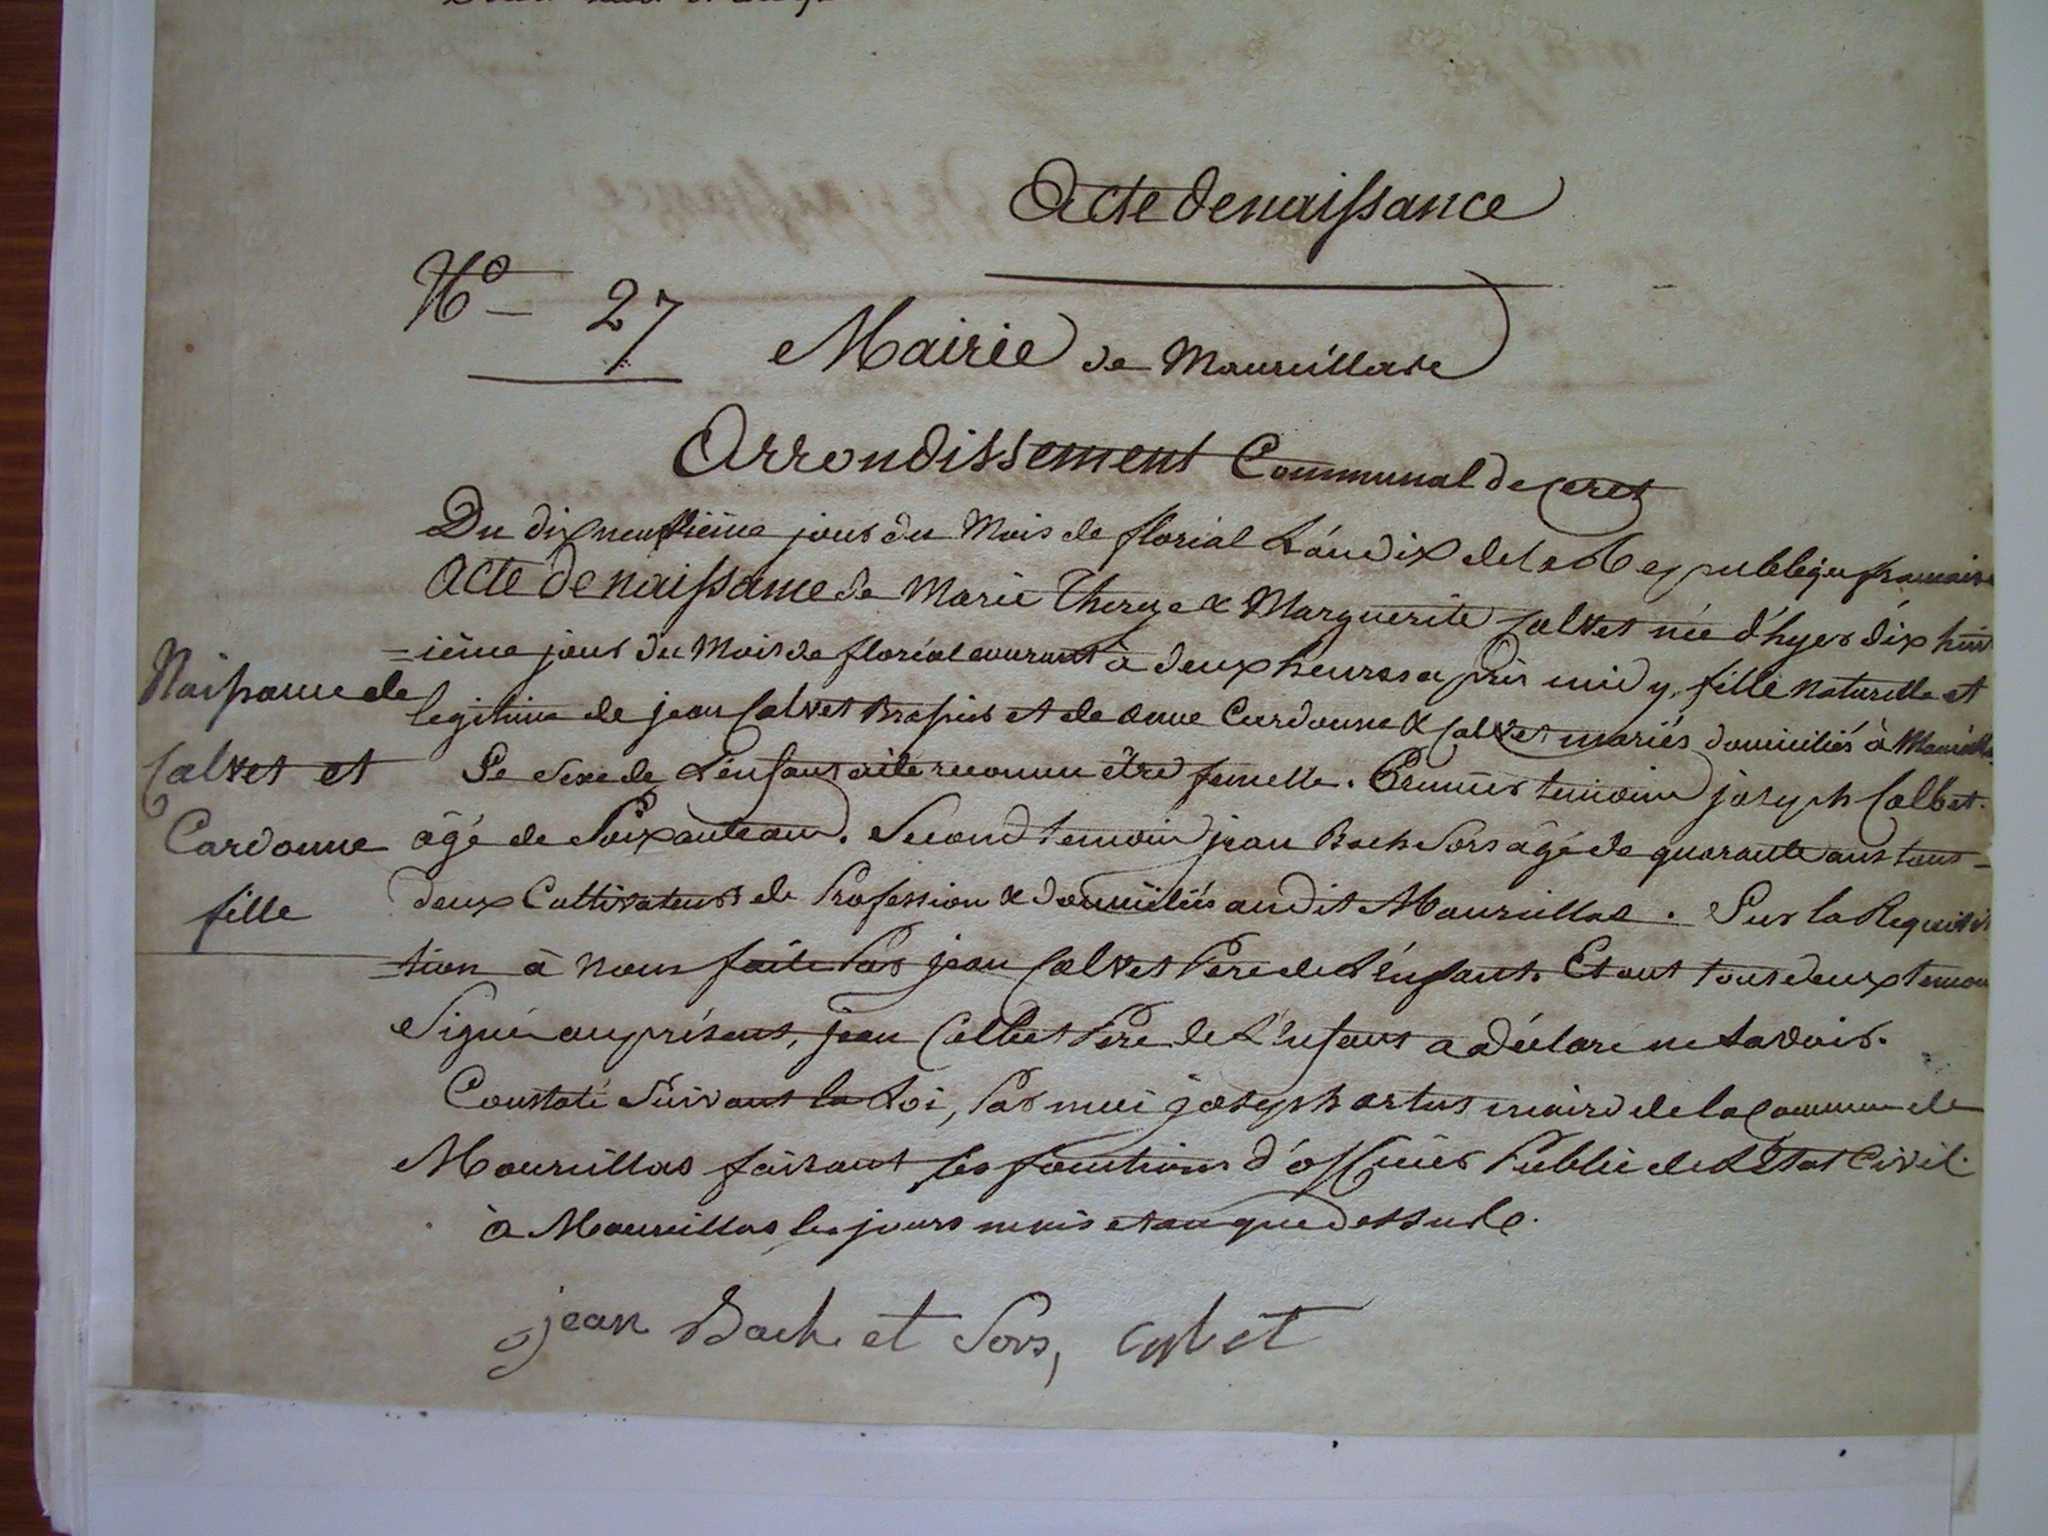 Acte de naissance
No 27
Mairie de Maureillas
Arrondissement Communal de Ceret
Du dix neufvième jour du Mois de florial L'án dix de la Republeque francaise
Acte de naissance de Marie Thereze & Marguerite Calvet née d'hyer dix huit
=ième jour du Mois de floréal courant à deux heures apprès midy, fille naturelle et
legitime de jean Calvet Brassier et de anne Cardonne & Calvet mariés domiciliés à Maureillas.
Le sexe de L'enfant a été reconnu être femelle. Premier temoin joseph Calbet.
âgé de Soixante ans. Second temoin jean Bach Sors âgé de quarante ans tous=
deux Cultivateurs de Profession & domiciliés audit Maureillas. Sur la Requisi
=tion à nous faite Par jean Calvet Père de L'énfant. Et ont tous deux temoins
Signé au présent, jean Calbet Père de L'énfant a déclaré ne savoir.
Constaté Suivant la Loi, Par moi joseph artus maire de la Commune de
Maureillas faisant les fonctions d'officier Public de L'état Civil.
à Maureillas les jours mois et an que dessus.
Naissance de
Calvet et
Cardonne
fille
jean Bach et Sors, calbet